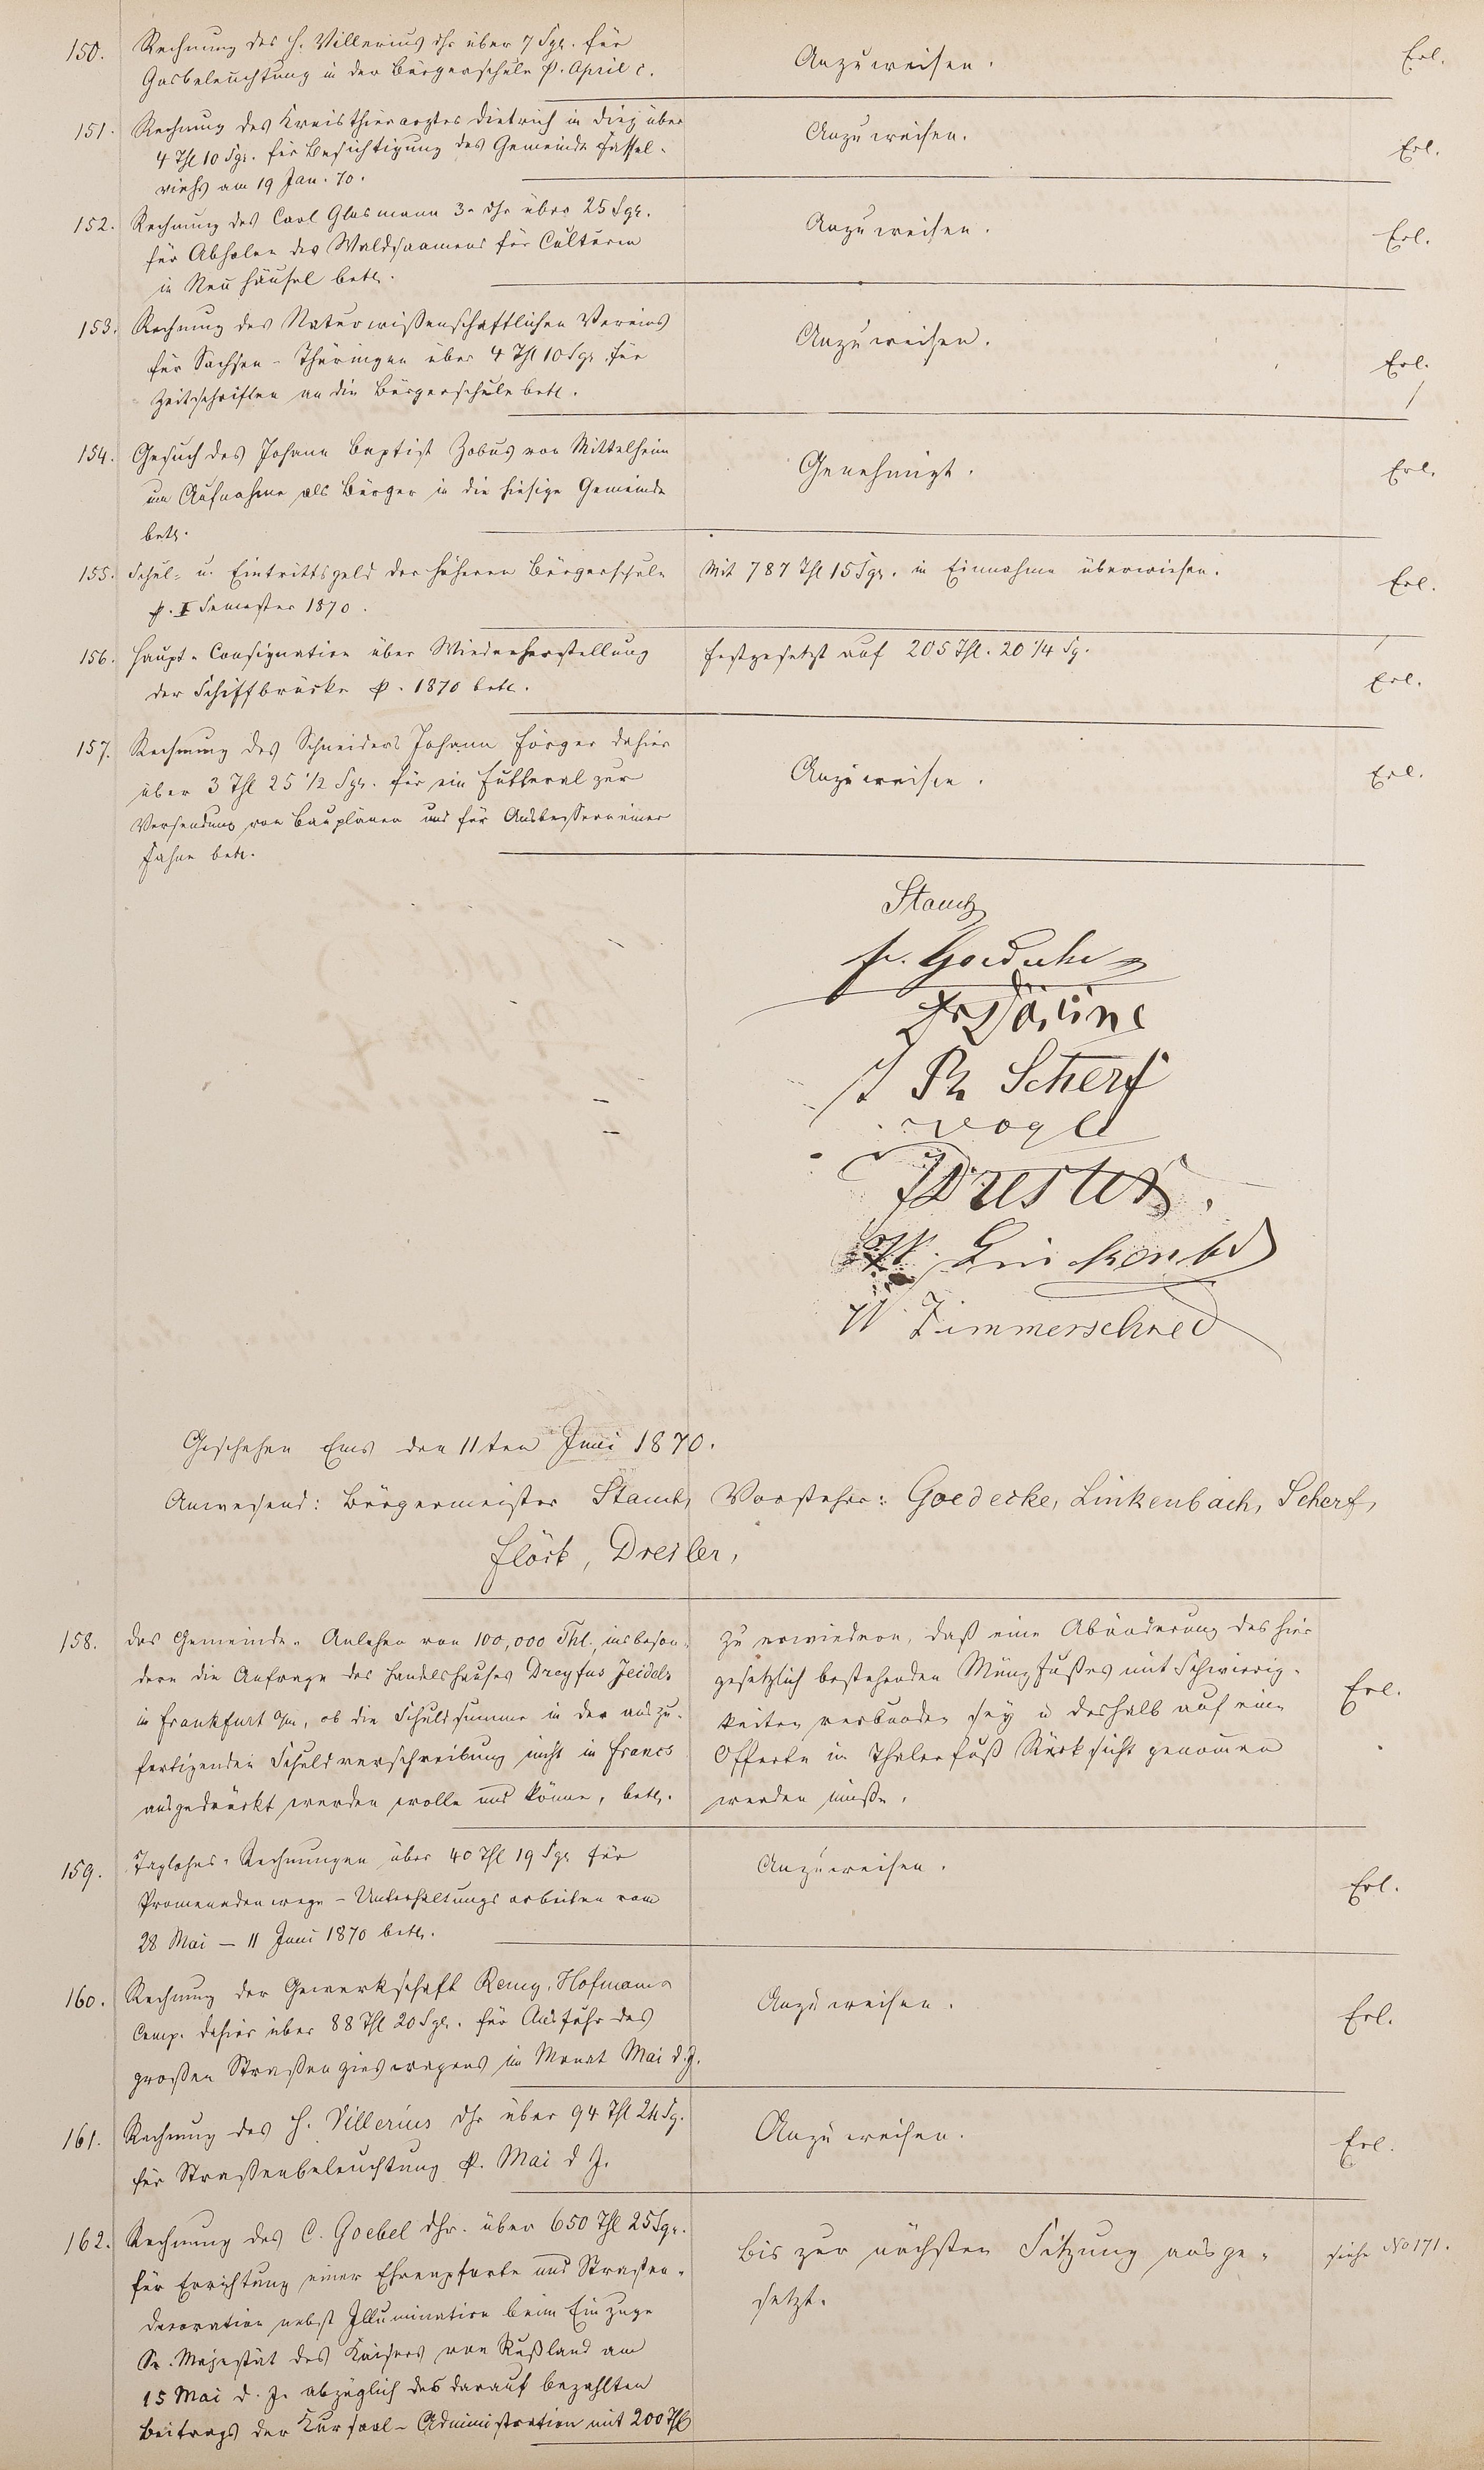 150. Rechnung des H. Villerius dhr über 7 Sgr. für
Gasbeleuchtung in der Bürgerschule p. April c.
Anzuweisen.
Erl.
151. Rechnung des Kreisthierarztes Dietrich in Diez über
4 Thl 10 Sgr. für Besichtigung des Gemeinde Fassel-
viehs am 19 Jan. 70.
Anzuweisen.
Erl.
152. Rechnung des Carl Glasmann 3r dhr über 25 Sgr.
für Abholen des Waldsaamens für Culturen
in Neuhäusel betr.
Anzuweisen.
Erl.
153. Rechnung des Naturwißenschaftlichen Vereins
für Sachsen-Thüringen über 4 Thl 10 Sgr. für
Zeitschriften an die Bürgerschule betr.
Anzuweisen.
Erl.
154. Gesuch des Johann Baptist Zobus von Mittelheim
um Aufnahme als Bürger in die hiesige Gemeinde
betr.
Genehmigt.
Erl.
155. Schul- u. Eintrittsgeld der höheren Bürgerschule
p. I Semester 1870.
Mit 787 Thl 15 Sgr. in Einnahme überwiesen.
Erl.
156. Haupt-Consignation über Wiederherstellung
der Schiffbrücke p. 1870 betr.
Festgesetzt auf 205 Thl. 20 1/4 Sg.
Erl.
157. Rechnung des Schneiders Johann Förger dahier
über 3 Thl 25 1/2 Sgr. für ein Futteral zur
Versendung von Bauplänen und für Ausbessern einer
Fahne betr.
Anzuweisen.
Erl.
Stamb
fr. Goedecke
Dr Döring
J Ph Scherf
Vogl
Dresler.
W. Linkenbd
W Zimmerschied
Geschehen Ems den 11ten Juni 1870.
Anwesend: Bürgermeister Stamb, Vorsteher: Goedecke, Linkenbach, Scherf,
Flöck, Dresler,
158. Das Gemeinde-Anlehen von 100,000 Thl., insbeson-
dere die Anfrage des Handelshauses Dreyfus Jeidels
in Frankfurt a/m, ob die Schuldsumme in der auszu-
fertigenden Schuldverschreibung nicht in Francs
ausgedrückt werden wolle und könne, betr.
Zu erwiedern, daß eine Abänderung des hier
gesetzlich bestehenden Münzfußes mit Schwierig-
keiten verbunden sey u deshalb auf eine
Offerte in Thalerfuß Rücksicht genommen
werden müße.
Erl.
159. Taglohns-Rechnungen über 40 Thl 19 Sgr. für
Promenadenwege-Unterhaltungsarbeiten vom
28 Mai – 11 Juni 1870 betr.
Anzuweisen.
Erl.
160. Rechnung der Gewerkschaft Remy, Hofmann &
Comp. dahier über 88 Thl 20 Sgr. für Ausfuhr des
großen Straßengieswagens im Monat Mai d. J.
Anzuweisen.
Erl.
161. Rechnung des H. Villerius dhr über 94 Thl 24 Sg.
für Straßenbeleuchtung p. Mai d J.
Anzuweisen.
Erl.
162. Rechnung des C. Goebel dhr. über 650 Thl 25 Sgr.
für Errichtung einer Ehrenpforte und Straßen-
decoration nebst Illumination beim Einzuge
Sr. Majestät des Kaisers von Rußland am
15 Mai d. J. abzüglich des darauf bezahlten
Beitrags der Kursaal-Administration mit 200 Thl
Bis zur nächsten Sitzung ausge-
setzt.
siehe No 171.